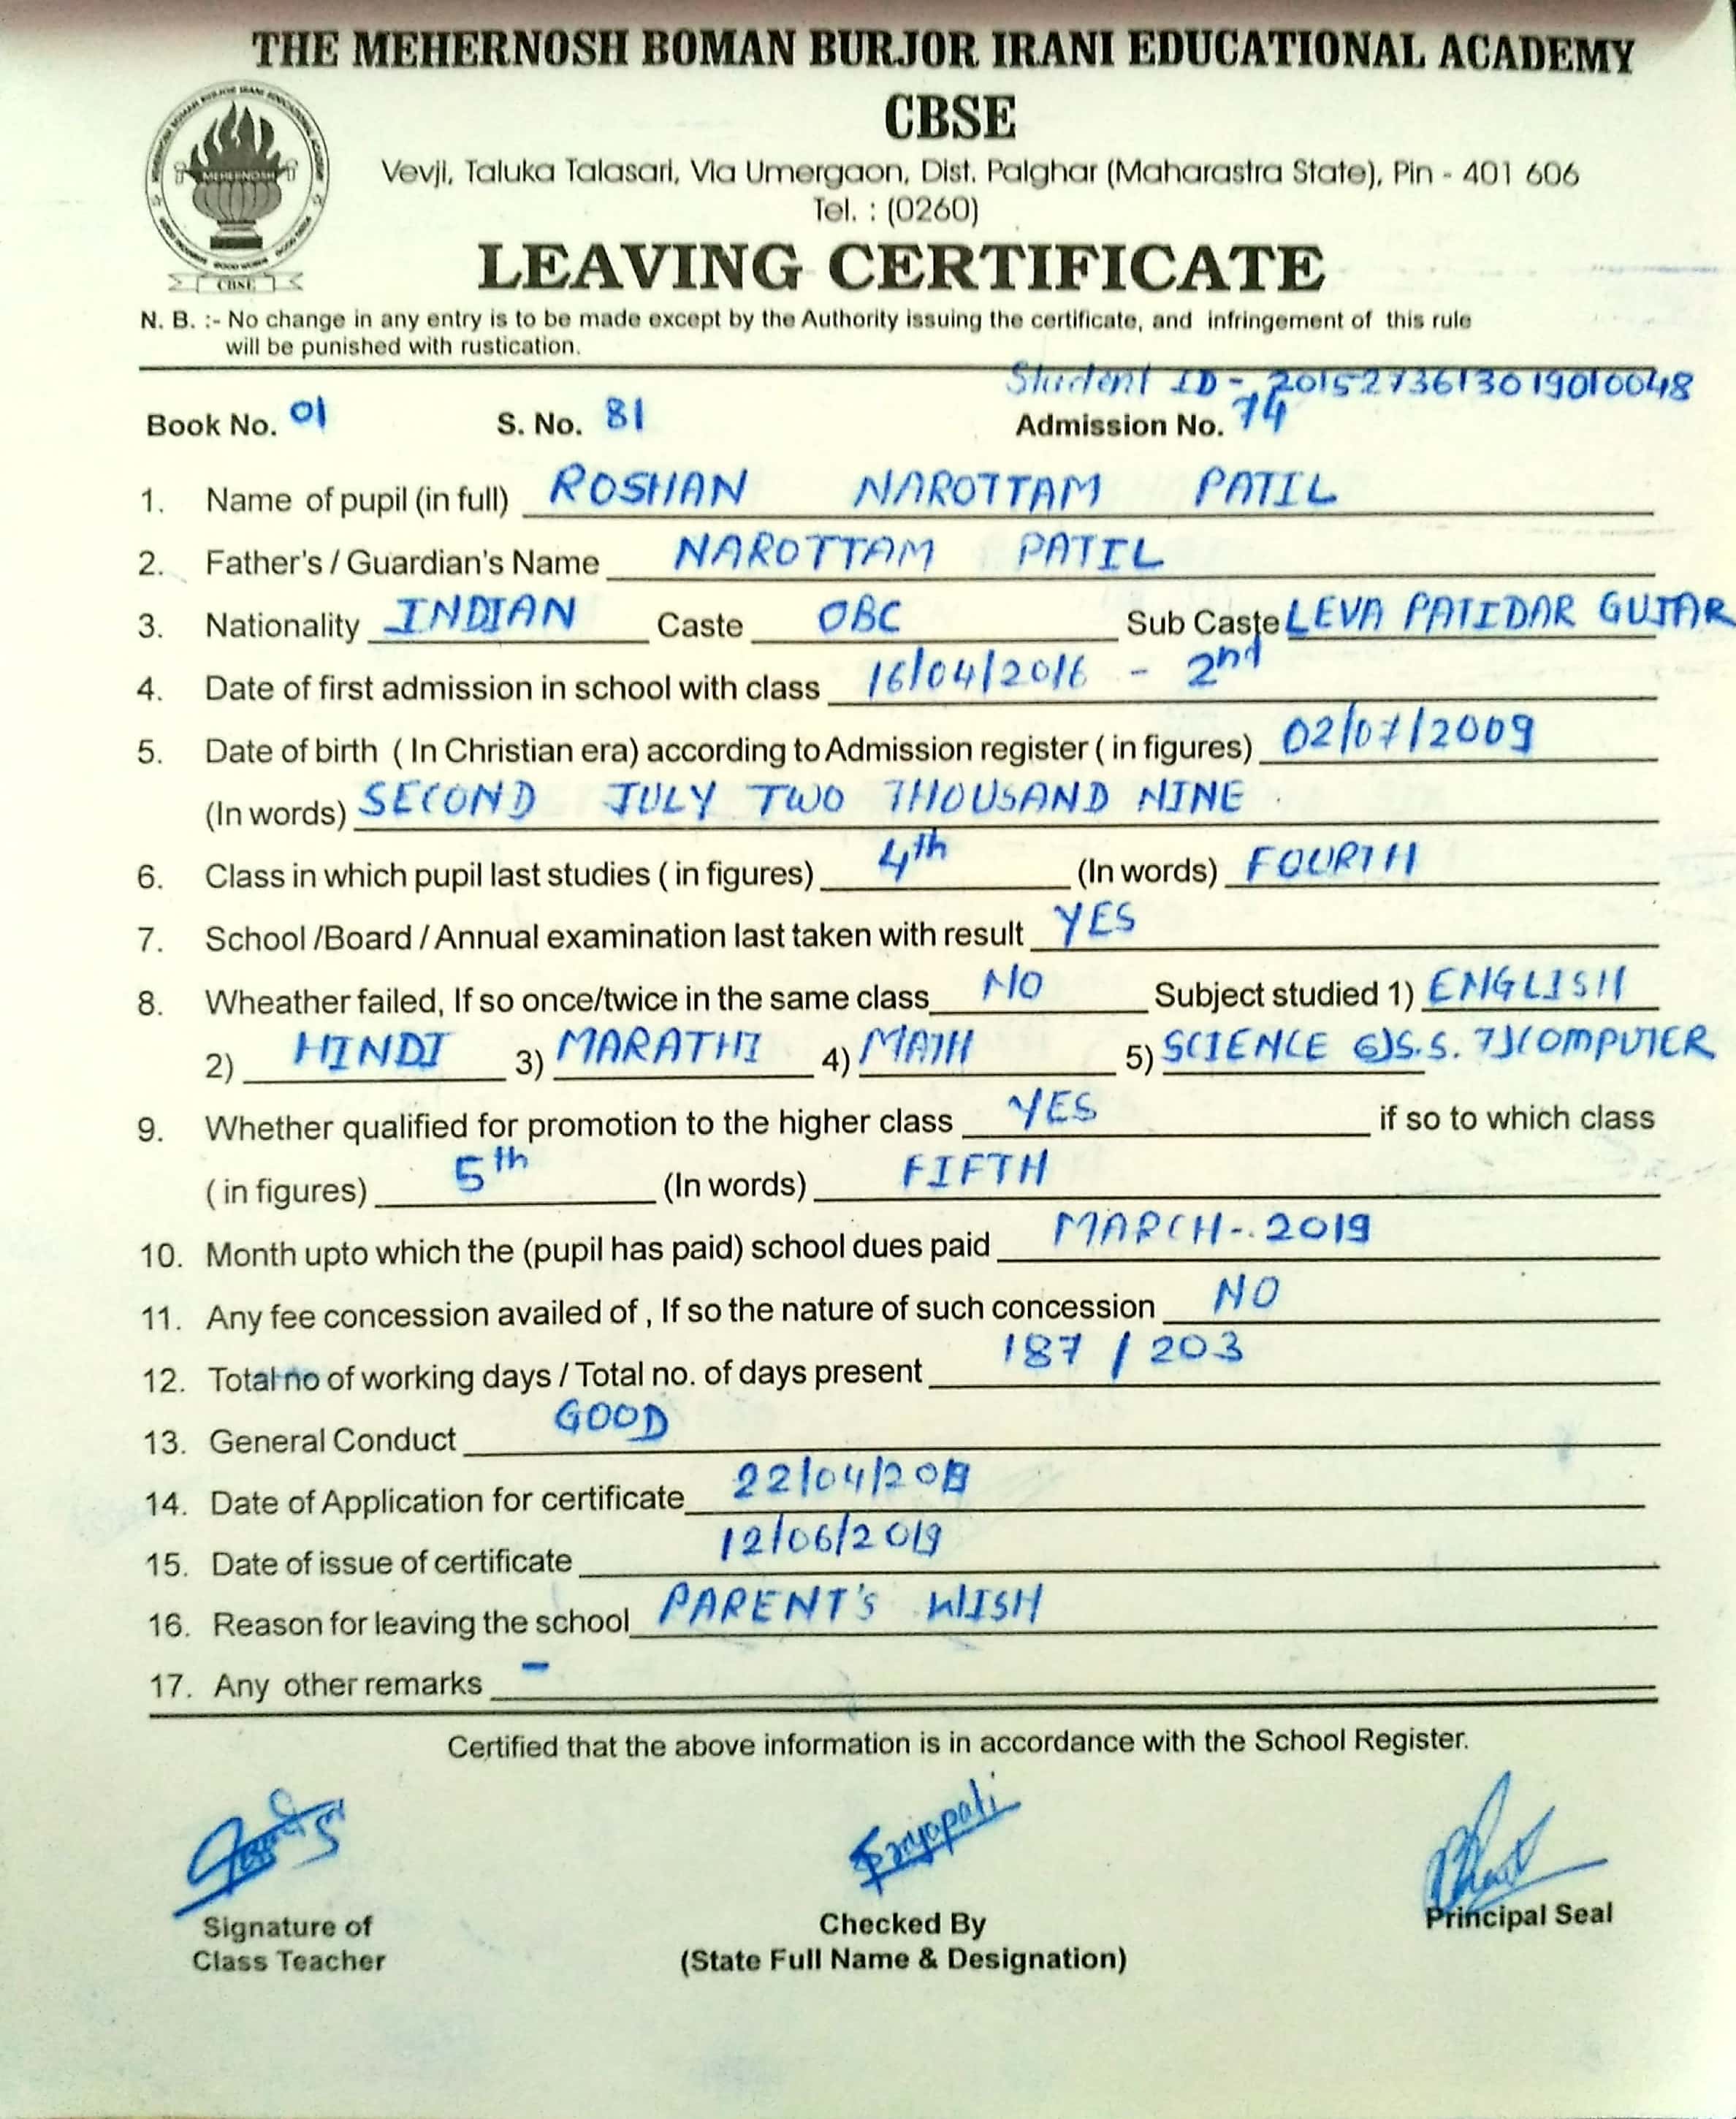 THE MEHERNOSH BOMAN BURJOR IRANI EDUCATIONAL ACADEMY
CBSE
MEHERNOSH
CBSE
Vevji, Taluka Talasari, Via Umergaon, Dist. Palghar (Maharastra State), Pin - 401 606
Tel. : (0260)
LEAVING CERTIFICATE
N. B. :- No change in any entry is to be made except by the Authority issuing the certificate, and infringement of this rule
will be punished with rustication.
Student ID - 2015273613019010048
Book No. 01 S. No. 81 Admission No. 74
1. Name of pupil (in full) ROSHAN NAROTTAM PATIL
2. Father's / Guardian's Name NAROTTAM PATIL
3. Nationality INDIAN Caste OBC Sub Caste LEVA PATIDAR GUJAR
4. Date of first admission in school with class 16/04/2016 - 2nd
5. Date of birth ( In Christian era) according to Admission register ( in figures) 02/07/2009
(In words) SECOND JULY TWO THOUSAND NINE
6. Class in which pupil last studies ( in figures) 4th (In words) FOURTH
7. School /Board / Annual examination last taken with result YES
8. Wheather failed, If so once/twice in the same class NO Subject studied 1) ENGLISH
2) HINDI 3) MARATHI 4) MATH 5) SCIENCE 6)S.S. 7)COMPUTER
9. Whether qualified for promotion to the higher class YES if so to which class
( in figures) 5th (In words) FIFTH
10. Month upto which the (pupil has paid) school dues paid MARCH-. 2019
11. Any fee concession availed of , If so the nature of such concession NO
12. Total no of working days / Total no. of days present 187 / 203
13. General Conduct GOOD
14. Date of Application for certificate 22/04/2019
15. Date of issue of certificate 12/06/2019
16. Reason for leaving the school PARENT'S WISH
17. Any other remarks -
Certified that the above information is in accordance with the School Register.
Signature of Checked By Principal Seal
Class Teacher (State Full Name & Designation)